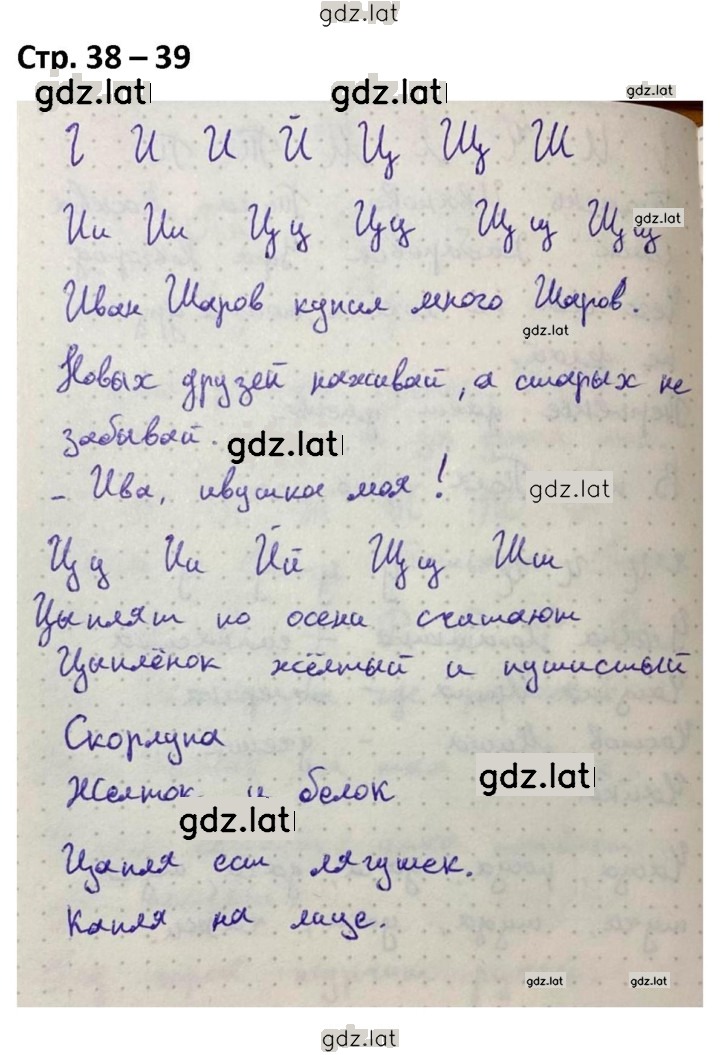 gdz.lat
Стр. 38 – 39
gdz.lat gdz.lat gdz.lat
И И Й Ц Щ Ш
Ии Ии Цц Цц Щщ Щщ
gdz.lat
Иван Шаров купил много Шаров.
gdz.lat
Новых друзей наживай, а старых не
забывай.
gdz.lat
– Ива, ивушка моя!
gdz.lat
Цц Ии Йй Щщ Шш
Цыплят по осени считают
Цыплёнок жёлтый и пушистый
Скорлупа
gdz.lat
Желток и белок
gdz.lat
Цапля ест лягушек.
Капля на лице.
gdz.lat gdz.lat
gdz.lat